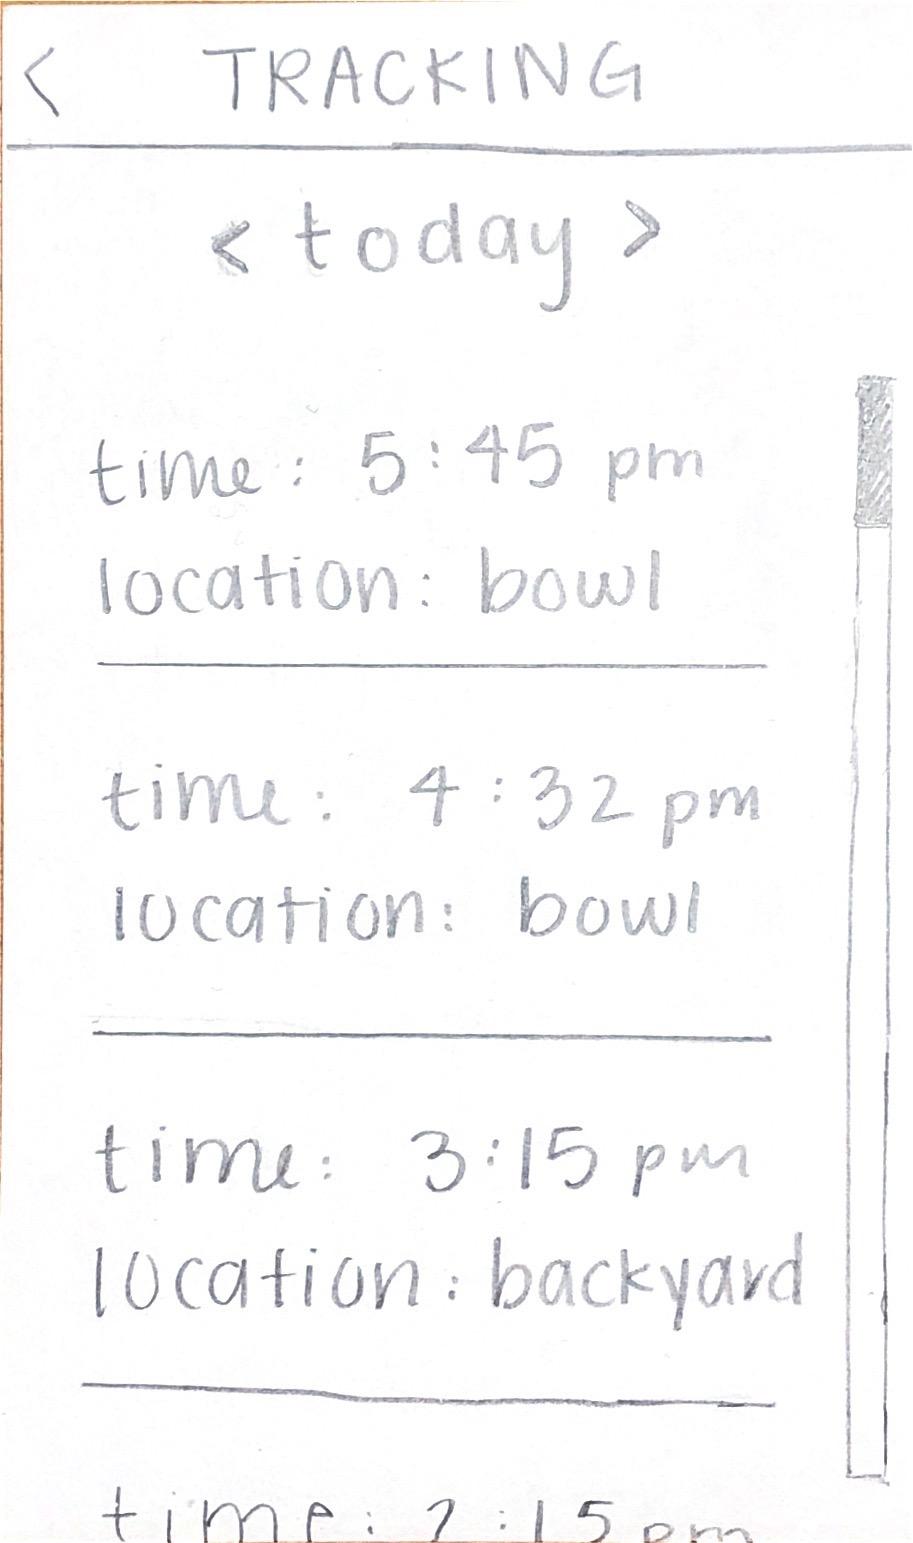 < TRACKING
< today >
time: 5:45 pm
location: bowl
time: 4:32 pm
location: bowl
time: 3:15 pm
location: backyard
time: 2:15 pm